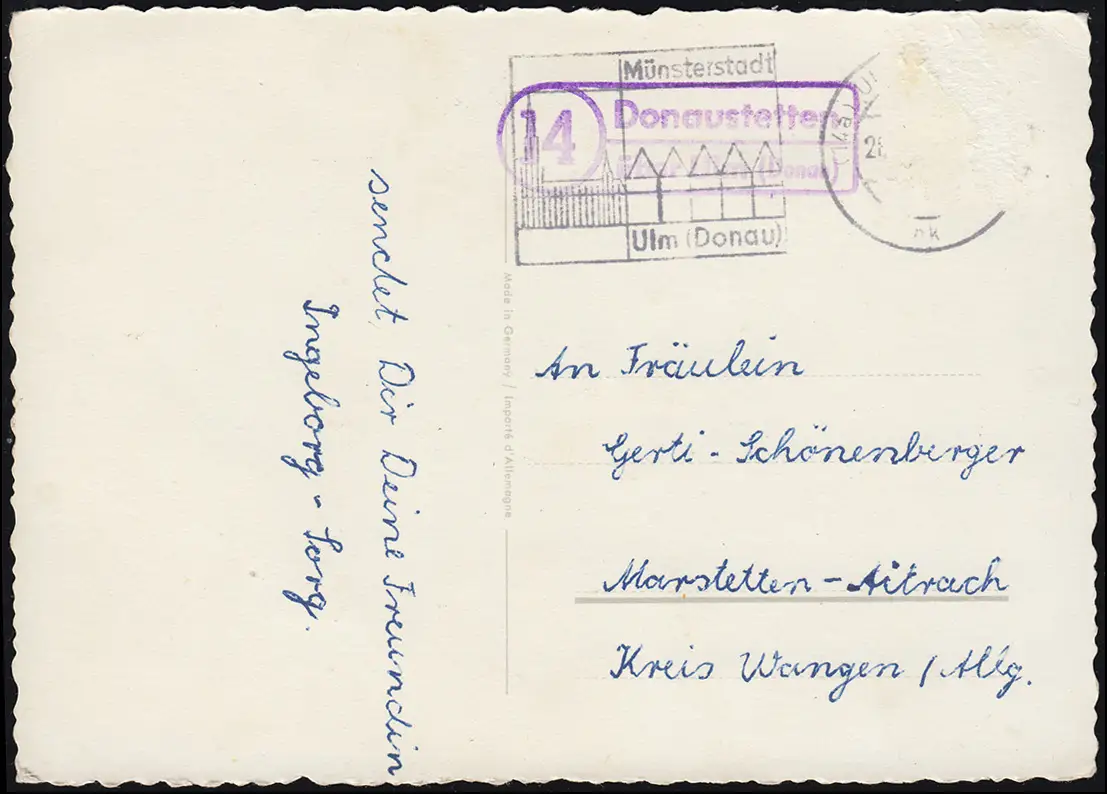 Münsterstadt
14
Donaustetten
über Ulm (Donau)
Ulm (Donau)
(14a) UL
nk
sendet Dir Deine Freundin
Ingeborg - Sorg.
Made in Germany / Importé d'Allemagne
An Fräulein
Gerti - Schönenberger
Marstetten - Aitrach
Kreis Wangen / Allg.